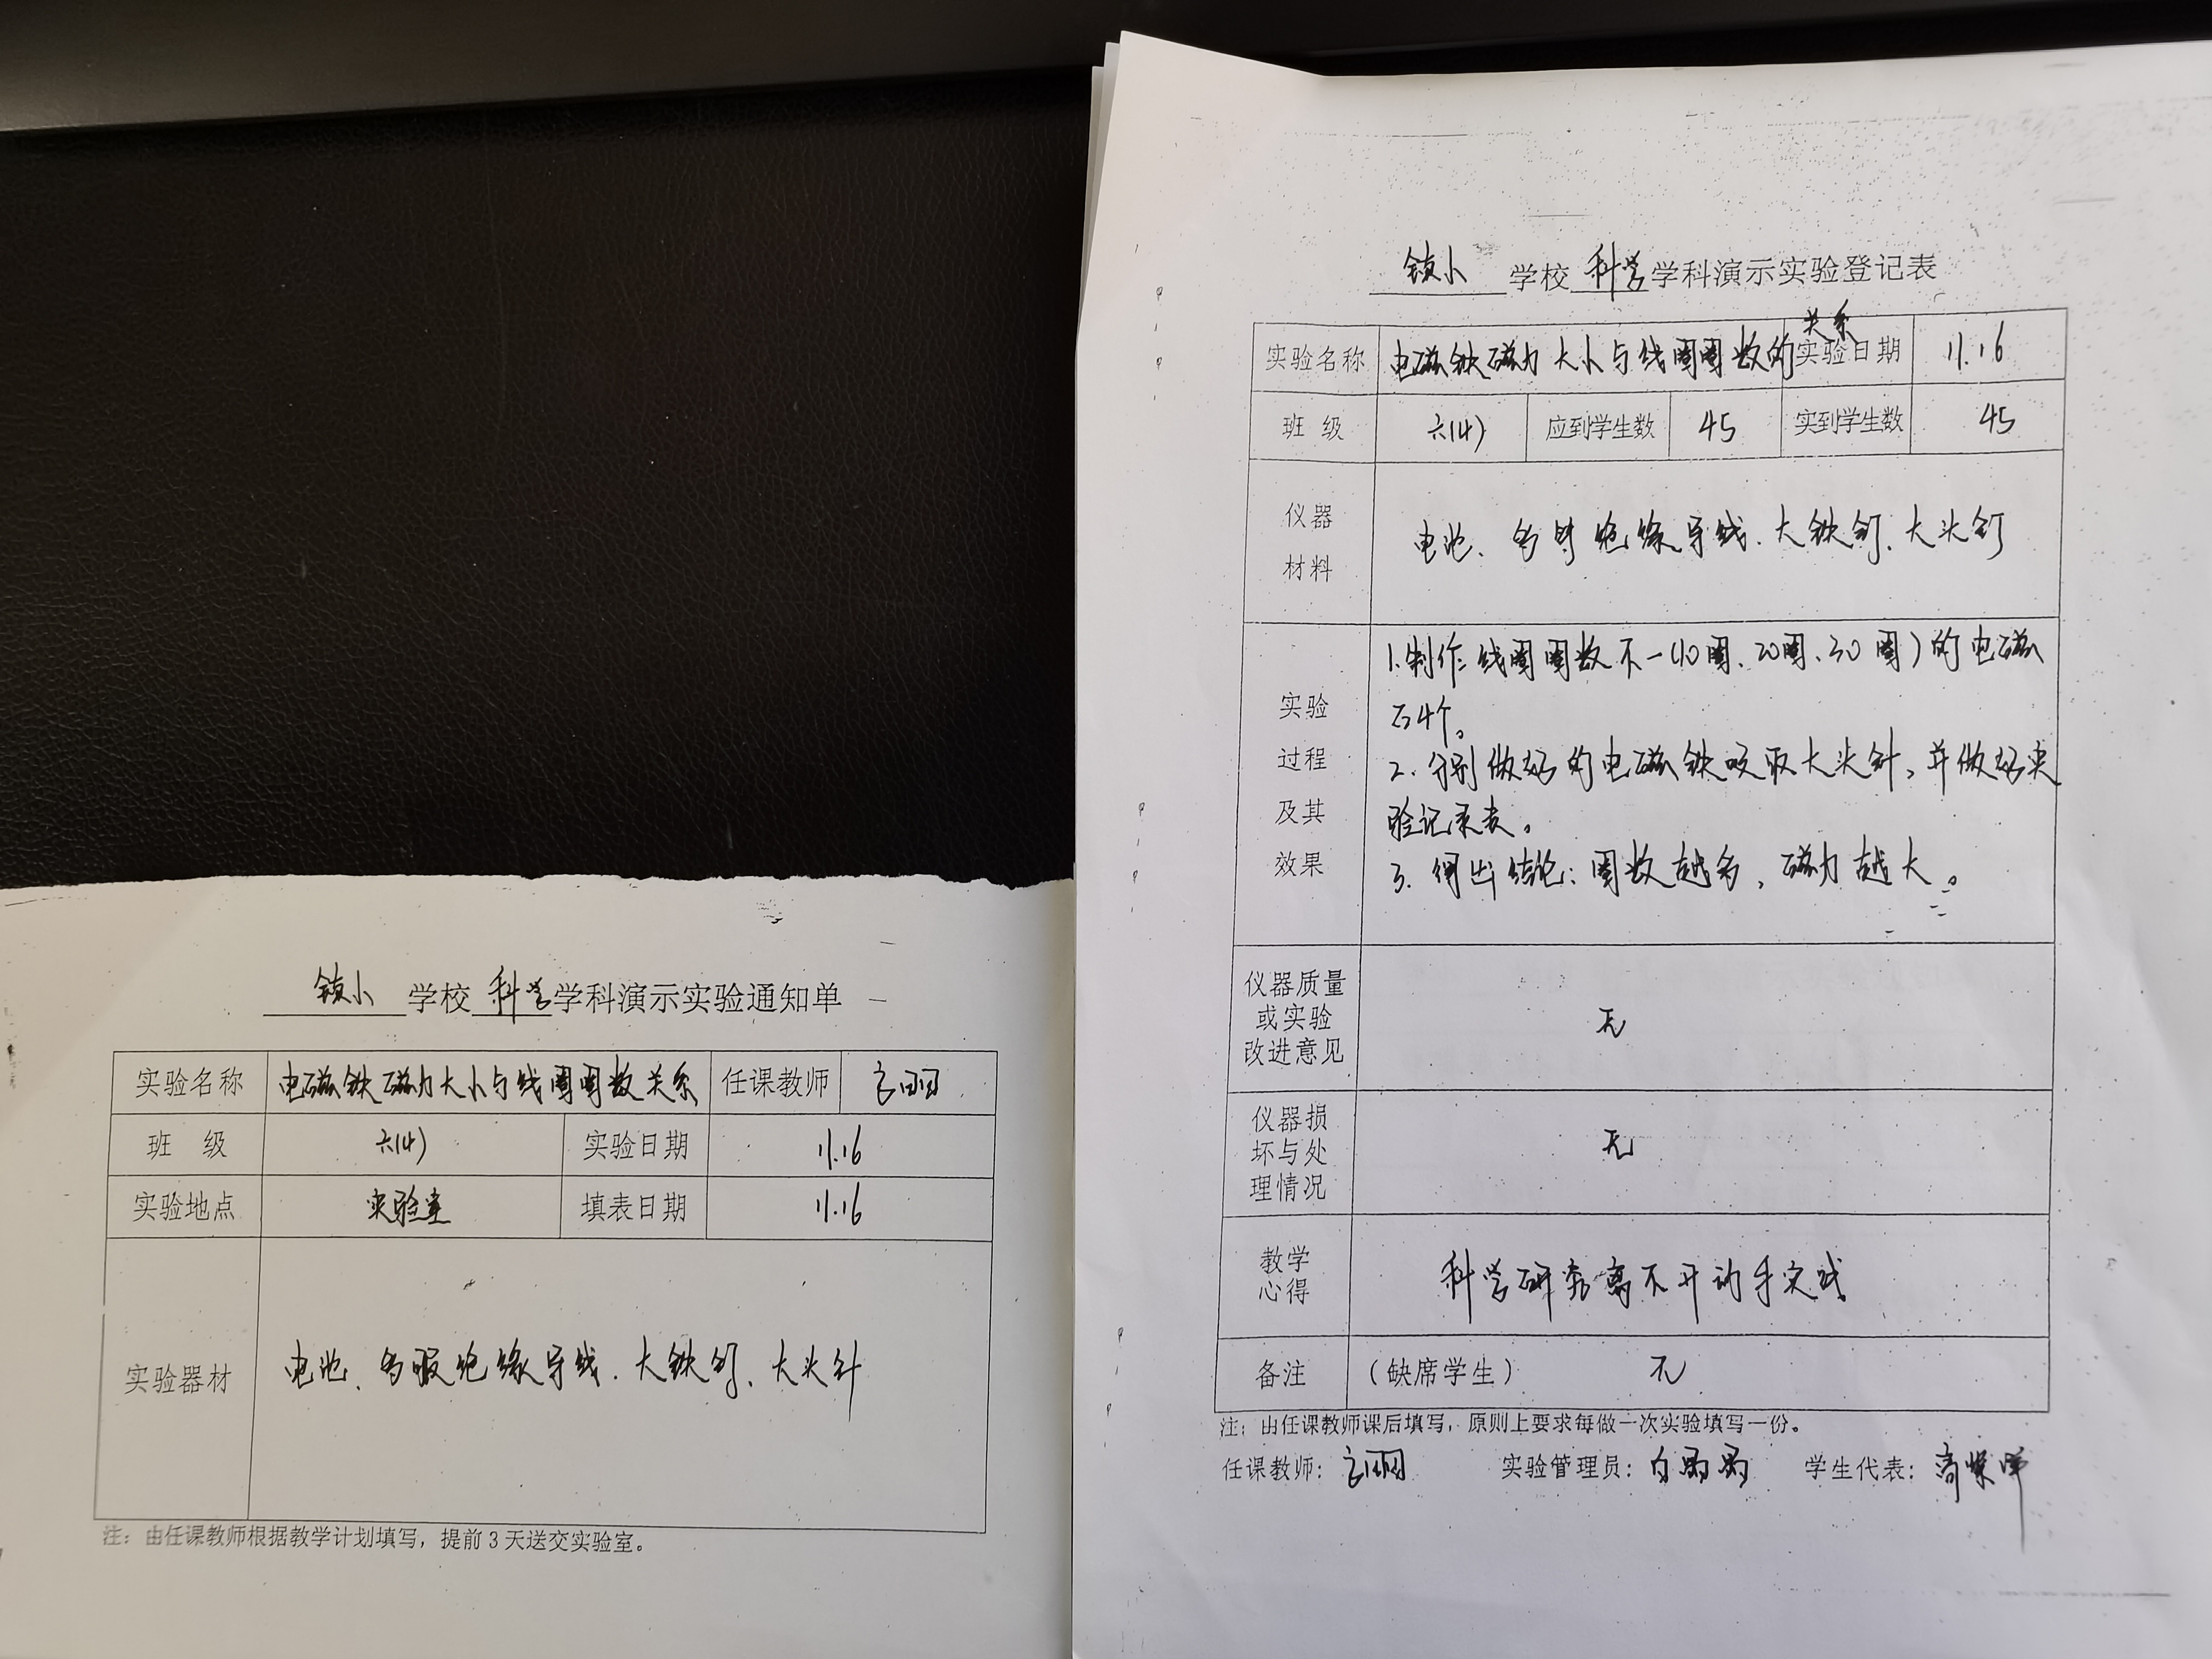 镇小 学校 科学 学科演示实验通知单
实验名称 电磁铁磁力大小与线圈圈数关系 任课教师
班 级 六(4) 实验日期 11.16
实验地点 实验室 填表日期 11.16
实验器材 电池、多股绝缘导线.大铁钉、大头针
注：由任课教师根据教学计划填写，提前3天送交实验室。
镇小 学校 科学 学科演示实验登记表
实验名称 电磁铁磁力大小与线圈圈数的关系 实验日期 11.16
班 级 六(4) 应到学生数 45 实到学生数 45
仪器
材料
电池、多 绝缘导线.大铁钉、大头钉
实验
过程
及其
效果
1.制作线圈圈数不一(10圈、20圈、30圈)的电磁
石4个。
2.分别做好的电磁铁吸取大头针，并做好实
验记录表。
3.得出结论：圈数越多，磁力越大。
仪器质量
或实验
改进意见
无
仪器损
坏与处
理情况
无
教学
心得
科学研究离不开动手实践
备注 （缺席学生） 无
注：由任课教师课后填写，原则上要求每做一次实验填写一份。
任课教师： 实验管理员：白 学生代表：高